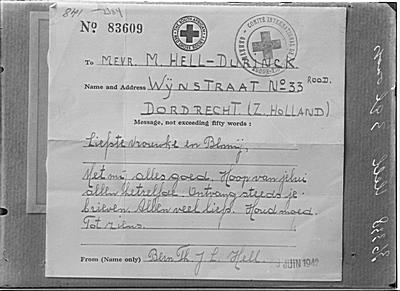 Nº 83609
To MEVR. M. HELL-DURINCK
Name and Address WIJNSTRAAT No 33 ROOD.
DORDRECHT (Z. HOLLAND)
Message, not exceeding fifty words :
Liefste vrouwke en Blomij,
Met mij alles goed. Hoop van jhui
allen hetzelfde. Ontvang steeds je
brieven. Allen veel liefs. Houd moed.
Tot ziens.
From (Name only) Bern. Th. J. L. Hell.
JUIN 194